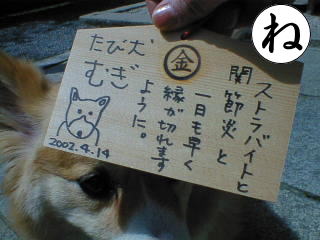 ね
金
ストラバイトと
関節炎と
一日も早く
縁が切れます
ように。
たび犬
むぎ
2002.4.14